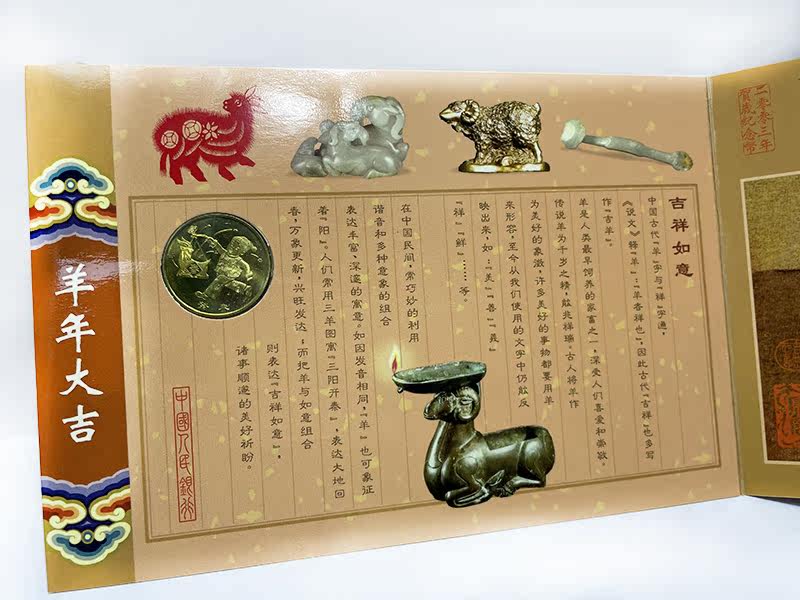 羊年大吉
二零零三年
賀歲紀念幣
吉祥如意
中国古代『羊』字与『祥』字通，
《说文》释『羊』：『羊者祥也』，因此古代『吉祥』也多写
作『吉羊』。
羊是人类最早饲养的家畜之一，深受人们喜爱和崇敬。
传说羊为千岁之精，能兆祥瑞。古人将羊作
为美好的象徵，许多美好的事物都要用羊
来形容，至今从我们使用的文字中仍能反
映出来，如：『美』『善』『羲』
『祥』『鲜』……等。
在中国民间，常巧妙的利用
谐音和多种意象的组合
表达丰富、深邃的寓意。如因发音相同，『羊』也可象征
着『阳』。人们常用三羊图寓『三阳开泰』，表达大地回
春，万象更新，兴旺发达；而把羊与如意组合
则表达『吉祥如意』，
诸事顺遂的美好祈盼。
中國人民銀行